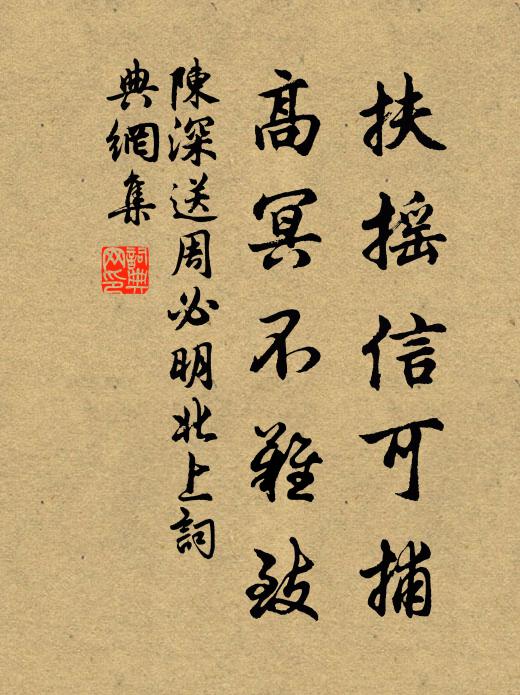 扶摇信可捕
高冥不難致
陳深送周必明北上詞
典網集
詞典网印